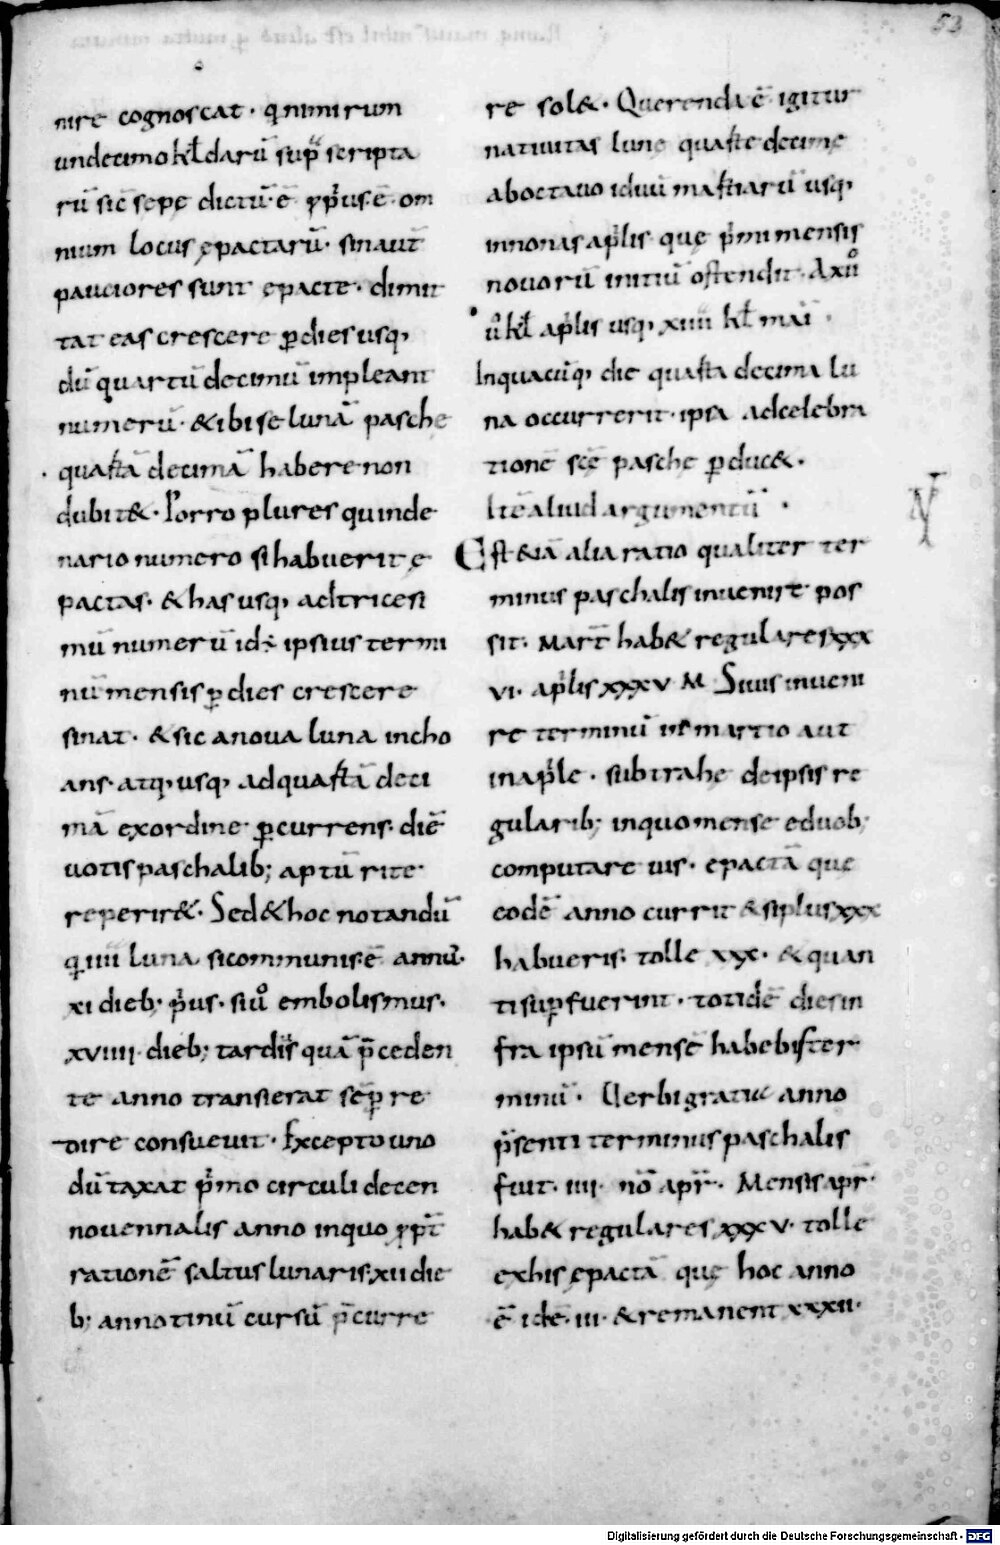 53
nire cognoscat · q nimirum
undecimo kł darū sup scripta
rū sic̄ sepę dictū·ē ꝓpus·ē· om
nium locus ępactarū· sinaut̄
pauciores sunt ępacte· dimit
tat eas crescere ꝑdies usq;
dū quartū decimū impleant
numerū· & ibi se lunā pasche
quartā decimā habere non
dubit&· Porro plures quinde
nario numero si habuerit ę
pactas· & has usq; ad tricesi
mū numerū id÷ ipsius termi
nū mensis ꝑdies crescere
sinat· & sic a noua luna incho
ans· atq; usq; ad quartā deci
mā ex ordine ꝑcurrens· diē
uotis paschalib; aptū rite
reperir&· Sed & hoc notandū
q iiii luna, si communis·ē annū·
xi dieb; p̄us· siu° embolismus·
xviiii· dieb; tardiꝰ quā p̄ceden
te anno transierat sēꝑ re
dire consueuit· Excepto uno
dū taxat p̄mo circuli decen
nouennalis anno in quo ꝓpt̄
rationē saltus lunaris· xii die
b; annotinū cursū p̄curre
re sol&· Querenda ē igitur
natiuitas lune quarte decime
ab octauo iduū martiarū usq;
in nonas aplis que p̄mi mensis
nouorū initiū ostendit· A xii°
u° kł aplis usq; xiiii kł mai·
In quacūq; die quarta decima lu
na occurrerit· ipsa ad celebra
tionē sc̄e pasche ꝑduc&·
Itē aliud argumentū·
Est &iā alia ratio qualiter ter
minus paschalis inuenire pos
sit· Mart̄ hab& regulares xxx
vi· aplis xxxv M Siuis inueni
re terminū in martio aut
in aple· subtrahe de ipsis re
gularib; in quo mense e duob;
computare uis· epactā que
eodē anno currit & si plus xxx
habueris· tolle xxx· & quan
ti supfuerint· totidē dies in
fra ipsū mensē habebis ter
minū· Uerbi gratia anno
p̄senti terminus paschalis
fuit· iiii· no͞ apr̄· Mensis apr̄·
hab& regulares xxxv· tolle
ex his ępactā quę hoc anno
ē idē· iii· & remanent xxxii·
Digitalisierung gefördert durch die Deutsche Forschungsgemeinschaft - DFG